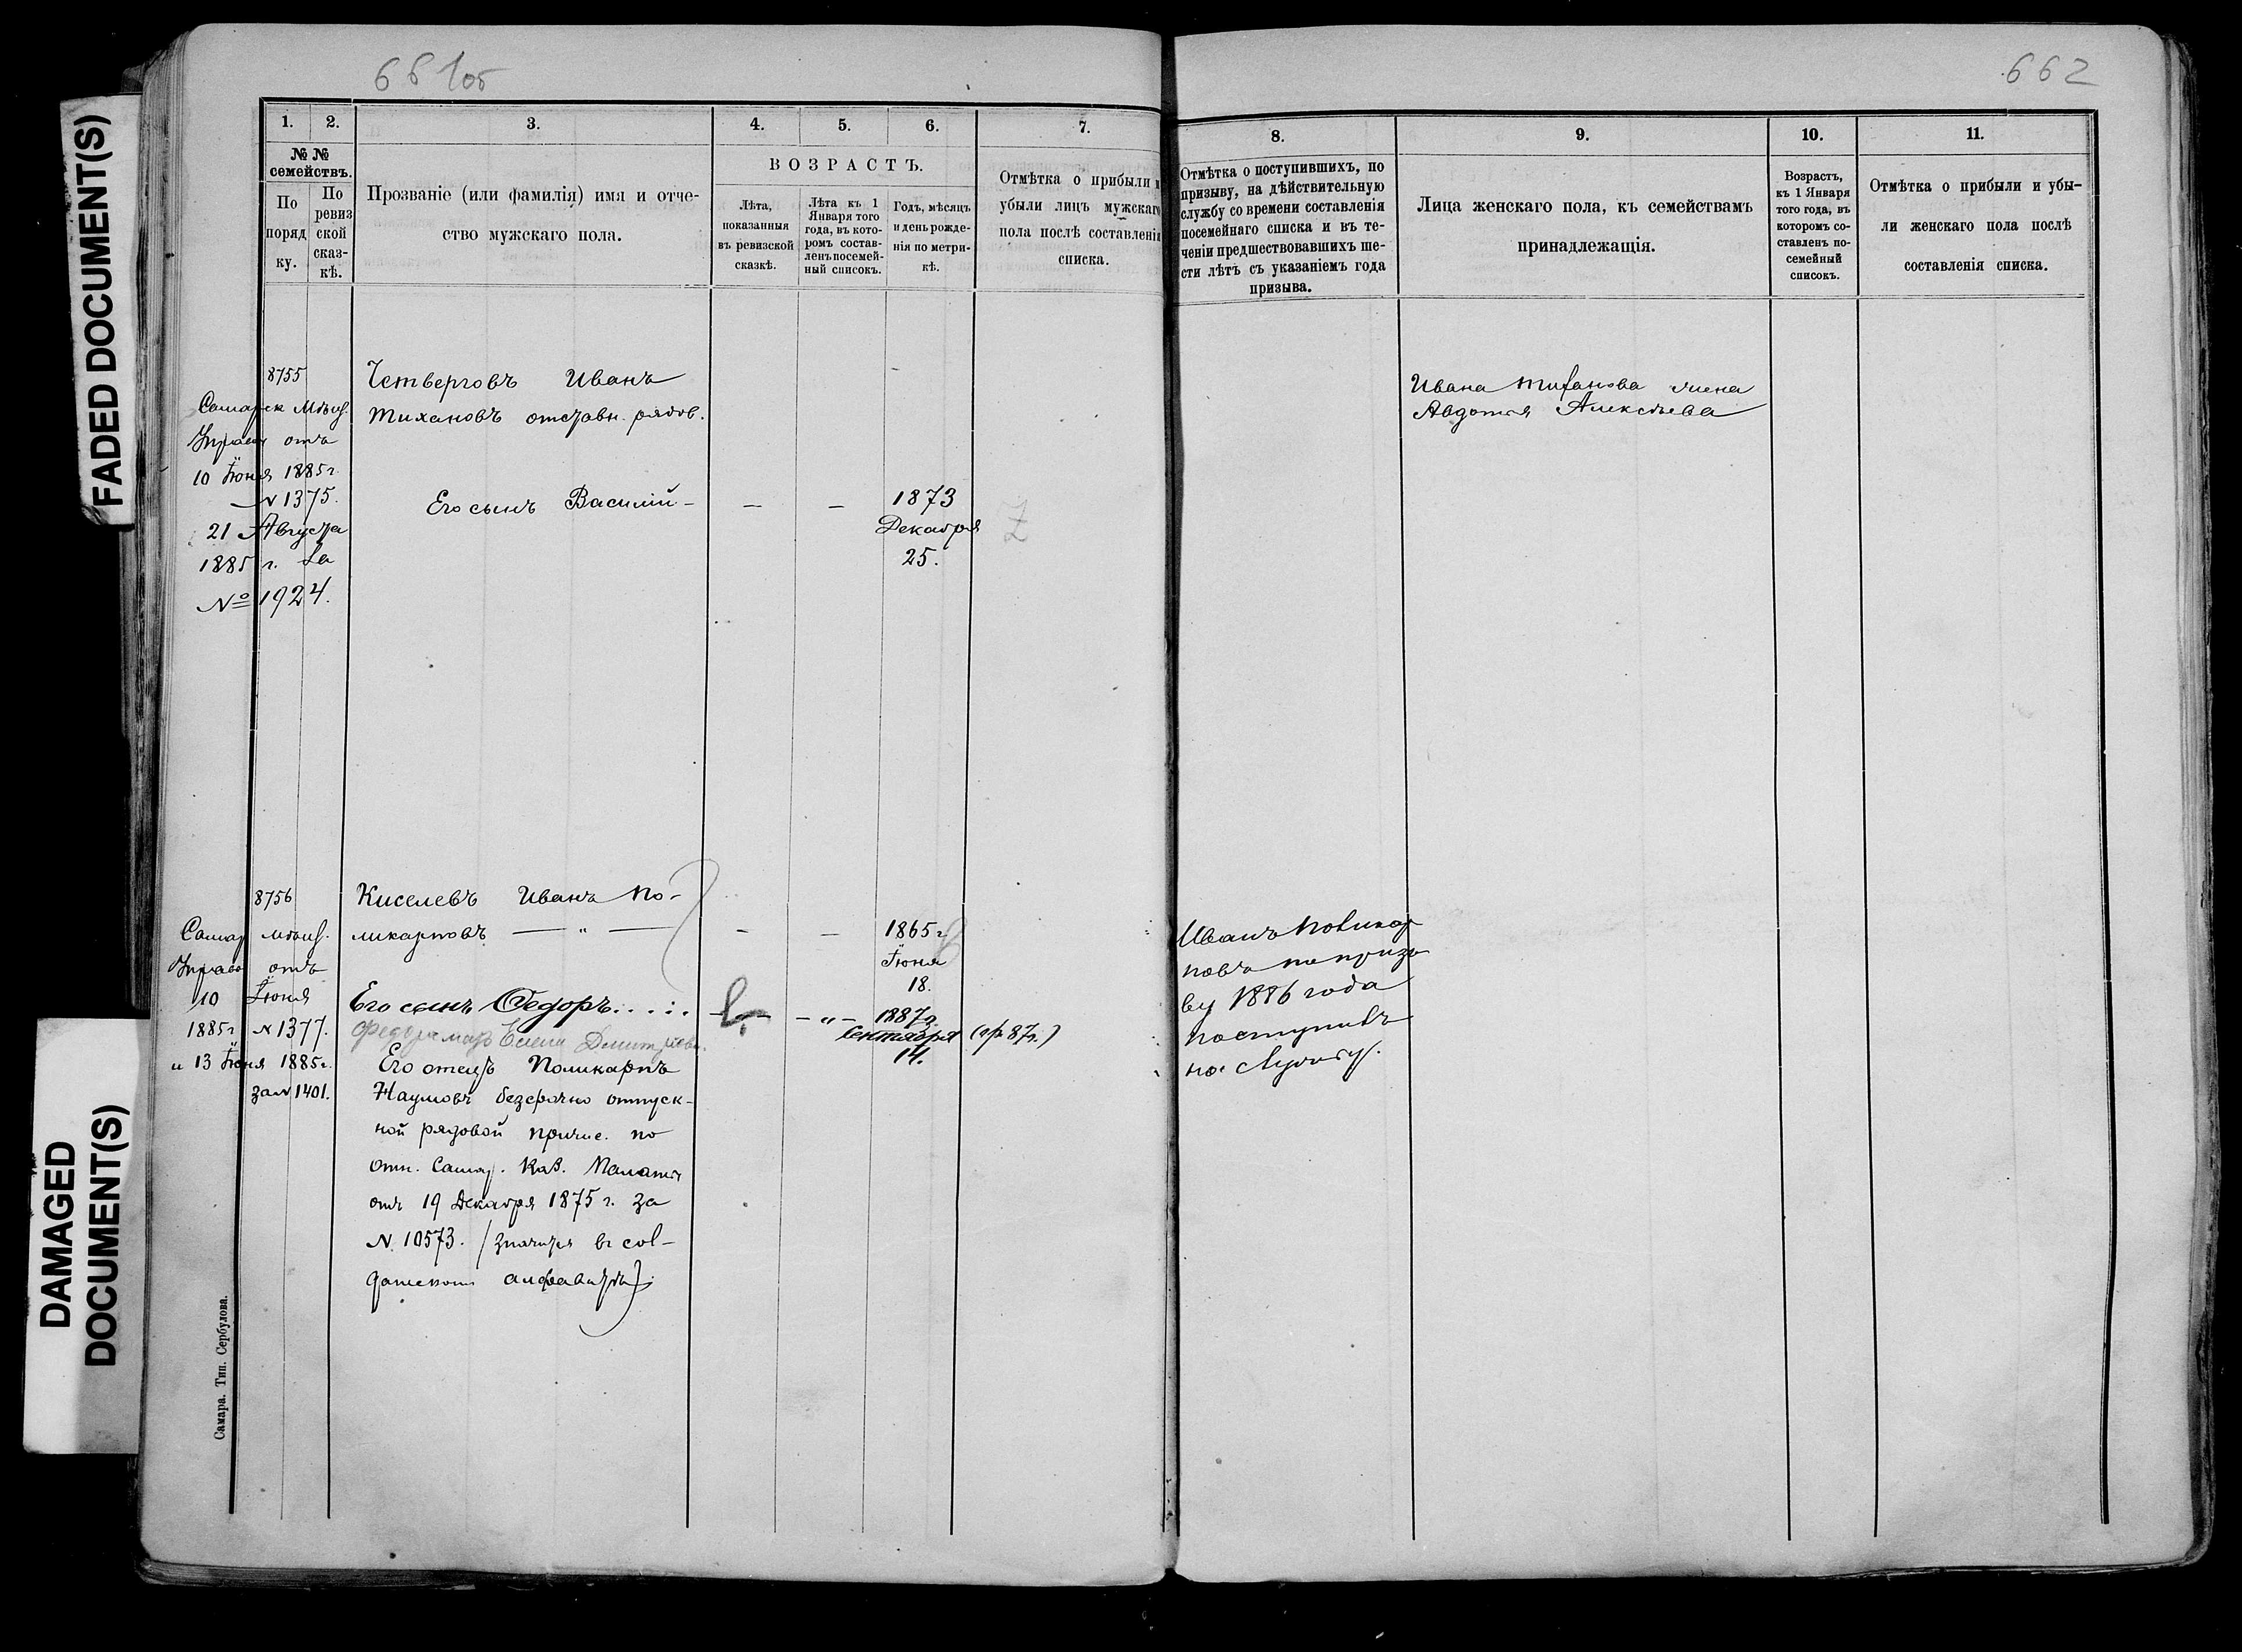 661об
662
FADED DOCUMENT(S)
DAMAGED
DOCUMENT(S)
1. 2. 3. 4. 5. 6. 7.
№ №
семействъ.
По
поряд
ку.
По
ревиз
ской
сказ-
кѣ.
Прозваніе (или фамилія) имя и отче-
ство мужскаго пола.
ВОЗРАСТЪ.
Лѣта,
показанныя
въ ревизской
сказкѣ.
Лѣта къ 1
Января того
года, въ кото-
ромъ состав-
ленъ посемей-
ный списокъ.
Годъ, мѣсяцъ
и день рожде-
нія по метри-
кѣ.
Отмѣтка о прибыли и
убыли лицъ мужскаго
пола послѣ составленія
списка.
8755
Самарск Мѣщ.
Управы отъ
10 Іюня 1885 г.
N 1375.
21 Августа
1885 г. за
№ 1924.
Четверговъ Иванъ
Тихановъ отставн. рядов.
Его сынъ Василій - — —
1873
Декабря
25.
8756
Самар мѣщ.
Управ отъ
10 Іюня
1885 г. N 1377.
и 13 Іюня 1885 г.
за N 1401.
Киселевъ Иванъ По-
ликарповъ — " — — —
1865 г.
Іюня
18.
Его сынъ Ѳедоръ..... — " —
1887 г.
Сентября
14.
(пр 87 г.)
Федора мать Елена Дмитріева.
Его отецъ Поликарпъ
Наумовъ безсрочно отпуск-
ной рядовой причис. по
отн. Самар. Каз. Палаты
отъ 19 Декабря 1875 г. за
N. 10573. (значится въ сол-
датскомъ алфавитѣ)
Самара. Тип. Сербулова.
8. 9. 10. 11.
Отмѣтка о поступившихъ, по
призыву, на дѣйствительную
службу со времени составленія
посемейнаго списка и въ те-
ченіи предшествовавшихъ ше-
сти лѣтъ съ указаніемъ года
призыва.
Лица женскаго пола, къ семействамъ
принадлежащія.
Возрастъ,
къ 1 Января
того года, въ
которомъ со-
ставленъ по-
семейный
списокъ.
Отмѣтка о прибыли и убы-
ли женскаго пола послѣ
составленія списка.
Ивана Тиханова жена
Авдотья Алексѣева
Иванъ Поликар
повъ по призы
ву 1886 года
поступилъ
на службу.